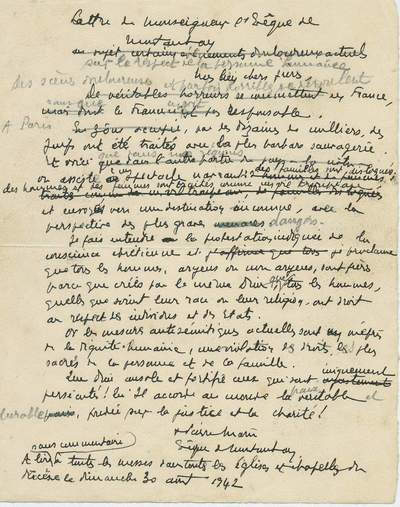 Lettre de Monseigneur l'Evêque de
Montauban
au sujet certains évènements douloureux actuels
sur le respect de la personne humaine
Mes biens chers frères,
des scènes douloureuses et parfois horribles se déroulent
De véritables horreurs se commettent en France,
sans que
mais dont la France n'est pas responsable.
A Paris,
En zône occupée, par les dizaines de milliers, des
juifs ont été traités avec la plus barbare sauvagerie.
Et voici que dans
on assiste à un spectacle navrant : des familles sont disloquées ;
des hommes et des femmes sont traités comme un vil troupeau
et envoyés vers une destination inconnue, avec la
perspective des plus graves dangers.
Je fais entendre la protestation indignée de la
conscience chrétienne et je proclame
que tous les hommes, aryens ou non aryens, sont frères
parce que créés par le même Dieu ; que tous les hommes,
quelle que soient leur race ou leur religion, ont droit
au respect des individus et des Etats.
Or les mesures antisémitiques actuelles sont un mépris
de la dignité humaine, une violation des droits les plus
sacrés de la personne et de la famille.
Que Dieu console et fortifie ceux qui sont iniquement
persécutés ! Qu'Il accorde au monde la paix véritable et
durable, fondée sur la justice et la charité !
+ Pierre Marie
Evêque de Montauban
sans commentaire
A lire à toutes les messes dans toutes les Eglises et chapelles du
diocèse le dimanche 30 août 1942